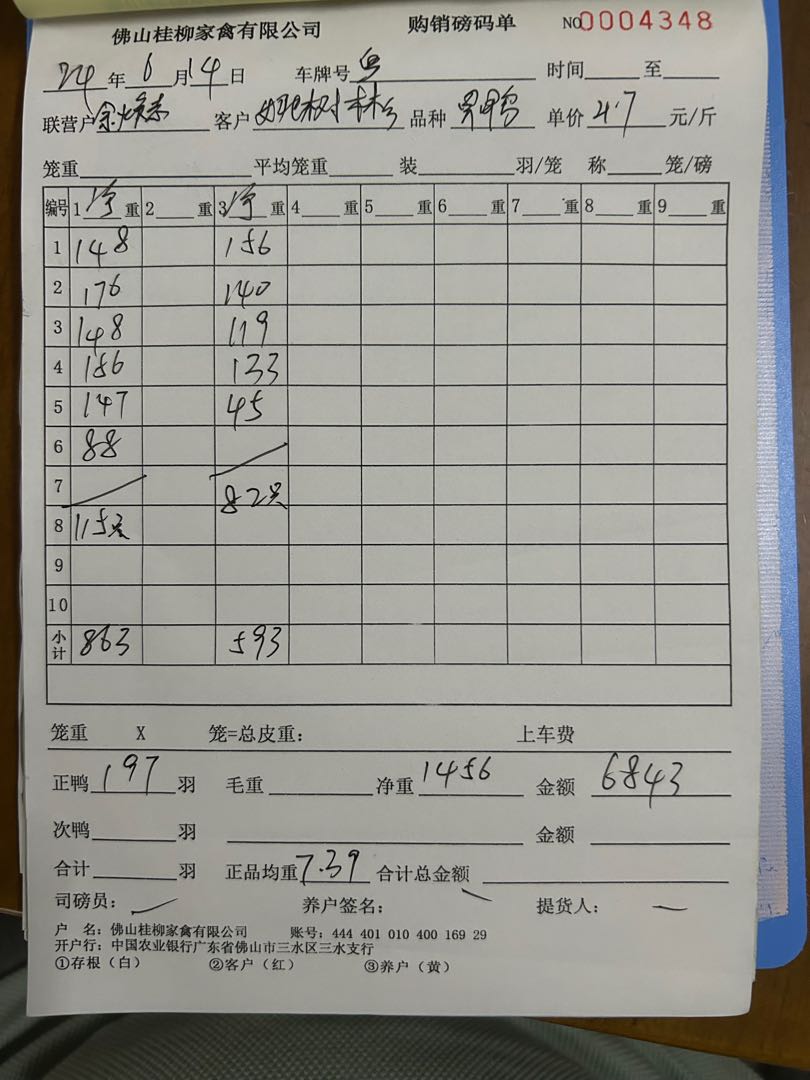 佛山桂柳家禽有限公司 购销磅码单 NO0004348
24年6月14日 车牌号 时间 至
联营户 客户 品种 单价4.7元/斤
笼重 平均笼重 装 羽/笼 称 笼/磅
编号 1净重 2 重 3净重 4 重 5 重 6 重 7 重 8 重 9 重
1 148 156
2 176 140
3 148 119
4 156 133
5 147 45
6 88
7 82只
8 115只
9
10
小计 863 593
笼重 X 笼=总皮重: 上车费
正鸭197羽 毛重 净重1456 金额6843
次鸭 羽 金额
合计 羽 正品均重7.39 合计总金额
司磅员: 养户签名: 提货人:
户 名: 佛山桂柳家禽有限公司 账号: 444 401 010 400 169 29
开户行: 中国农业银行广东省佛山市三水区三水支行
①存根(白) ②客户(红) ③养户(黄)